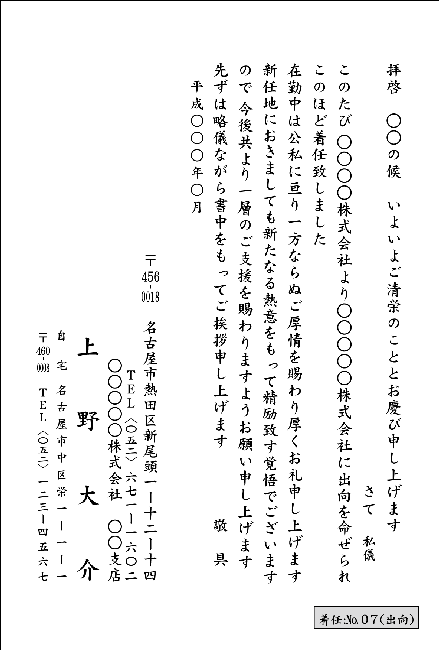 拝啓　〇〇の候　いよいよご清栄のこととお慶び申し上げます
さて　私儀
このたび〇〇〇〇株式会社より〇〇〇〇〇株式会社に出向を命ぜられ
このほど着任致しました
在勤中は公私に亘り一方ならぬご厚情を賜わり厚くお礼申し上げます
新任地におきましても新たなる熱意をもって精励致す覚悟でございます
ので今後共より一層のご支援を賜わりますようお願い申し上げます
先ずは略儀ながら書中をもってご挨拶申し上げます　敬具
平成〇〇〇年〇月
〒456-0018　名古屋市熱田区新尾頭一ー十二ー十四
TEL〈〇五二〉六七一ー一六〇二
〇〇〇〇〇株式会社　〇〇支店
上野大介
自宅　名古屋市中区栄一ー一ー一
〒460-0008　TEL〈〇五二〉一二三ー四五六七
着任:No.07(出向)